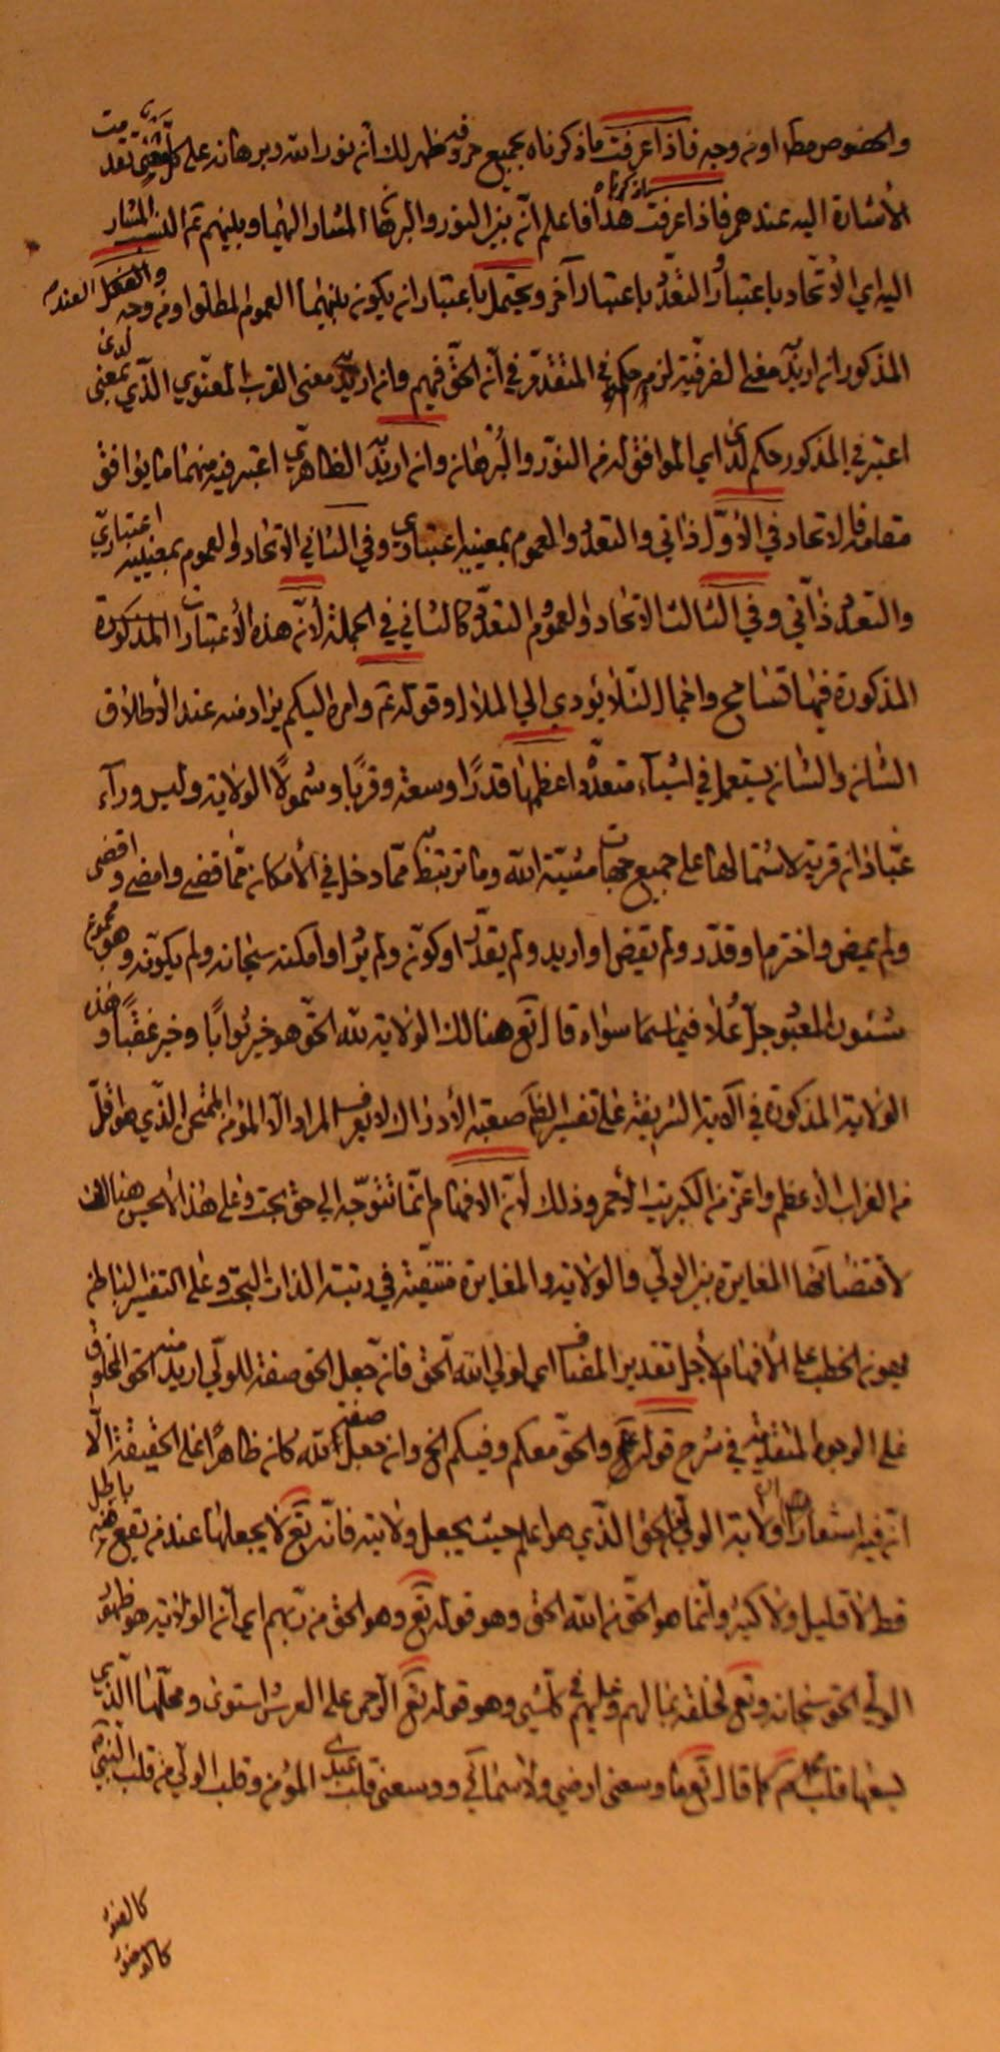 والخصوص مطلقا ومن وجه فاذا عرفت ما ذكرناه بجميع حروفه ظهر لك انه نور الله وبرهانه على كل معنى تقدمت
الاشارة اليه عندهم فاذا عرفت هذا فاعلم انّه بين النور والبرهان المشار اليهما وبينهم ثم المشار
اليه اي الاتحاد باعتبار والتعدّد باعتبار آخر ويحتمل باعتبار ان يكون بينهما العموم المطلق او من وجه
المذكور ان اريد معنى الظرفيّة لزم حكم في المتقدّم في انّه الحق فيهم وان اريد معنى القرب المعنوي الّذي بمعنى لدى
اعتبر في المذكور حكم لدى اي الموافق له من النور والبرهان وان اريد الظاهري اعتبر فيه منهما ما يوافق
مقامه فالاتحاد في الاوّل ذاتي والتعدد والعموم بمعنييه اعتباري وفي الثاني الاتحاد والعموم بمعنييه اعتباري
والتعدد ذاتي وفي الثالث الاتحاد والعموم التعدّد كالثاني في الجملة لانّ هذه الاعتبارات المذكورة
المذكورة فيها تسامح واجمال لئلا يؤدي الى الملال وقوله ثم وامره اليكم يراد منه عند الاطلاق
الشان والشان يستعمل في اشياء متعدّدة اعظمها قدرًا وسعة وقربًا وشمولًا الولاية وليس وراء
عبّادان قرية لاشتمالها على جميع جهات مشيّة الله وما ترتبط ممّا دخل في الامكان ممّا قضى وامضى وقضى
ولم يمض واخترم او قدّر ولم يقض او اريد ولم يقدّر او كوّن ولم يُرَد او امكنه سبحانه ولم يكوّنه وهو مجموع
شئون المعبود جلّ وعلا فيما سواه قال تع هنالك الولاية لله الحقّ هو خير ثوابًا وخير عقبًا وهذه
الولاية المذكورة في الآية الشريفة على تفسير الظاهر صعبة الادراك لا يعرف المراد الا المؤمن الممتحن الذي هو اقلّ
من الغراب الاعظم واعزّ من الكبريت الاحمر وذلك لانّ الافهام انّما تتوجّه الى حق بحت وعلى هذا لا يحسن هنالك
لاقتضائها المغايرة بين الولي والولاية والمغايرة منتفية في رتبة الذات البحت وعلى التفسير الباطن
يهون الخطب على الافهام لاجل تقدير المضاف اي لولي الله الحق فان جعل الحق صفة للولي اريد منه الحق المخلوق
على الوجوه المتقدّمة في شرح قوله ع والحق معكم وفيكم الخ وان جعل صفة الله كان ظاهرًا على الحقيقة الّا
انّ فيه اشعارا بان ولاية الولي الحق الذي هو اعلم حيث يجعل ولايته فانّه تع لا يجعلها عند من يقع منه باطل
قط لا قليل ولا كثير وانّما هو الحق من الله الحق وهو قوله تع وهو الحق من ربهم اي انّ الولاية هو ظهور
الولي الحق سبحانه وتع لخلقه بما لهم وعليهم في كل شيء وهو قوله تع الرحمن على العرش استوى ومحلّها الّذي
يسعها قلب كما قال تع ما وسعني ارضي ولا سمائي ووسعني قلب عبدي المؤمن وقلب الولي من قلب النبي
كالضوء
كالضوء